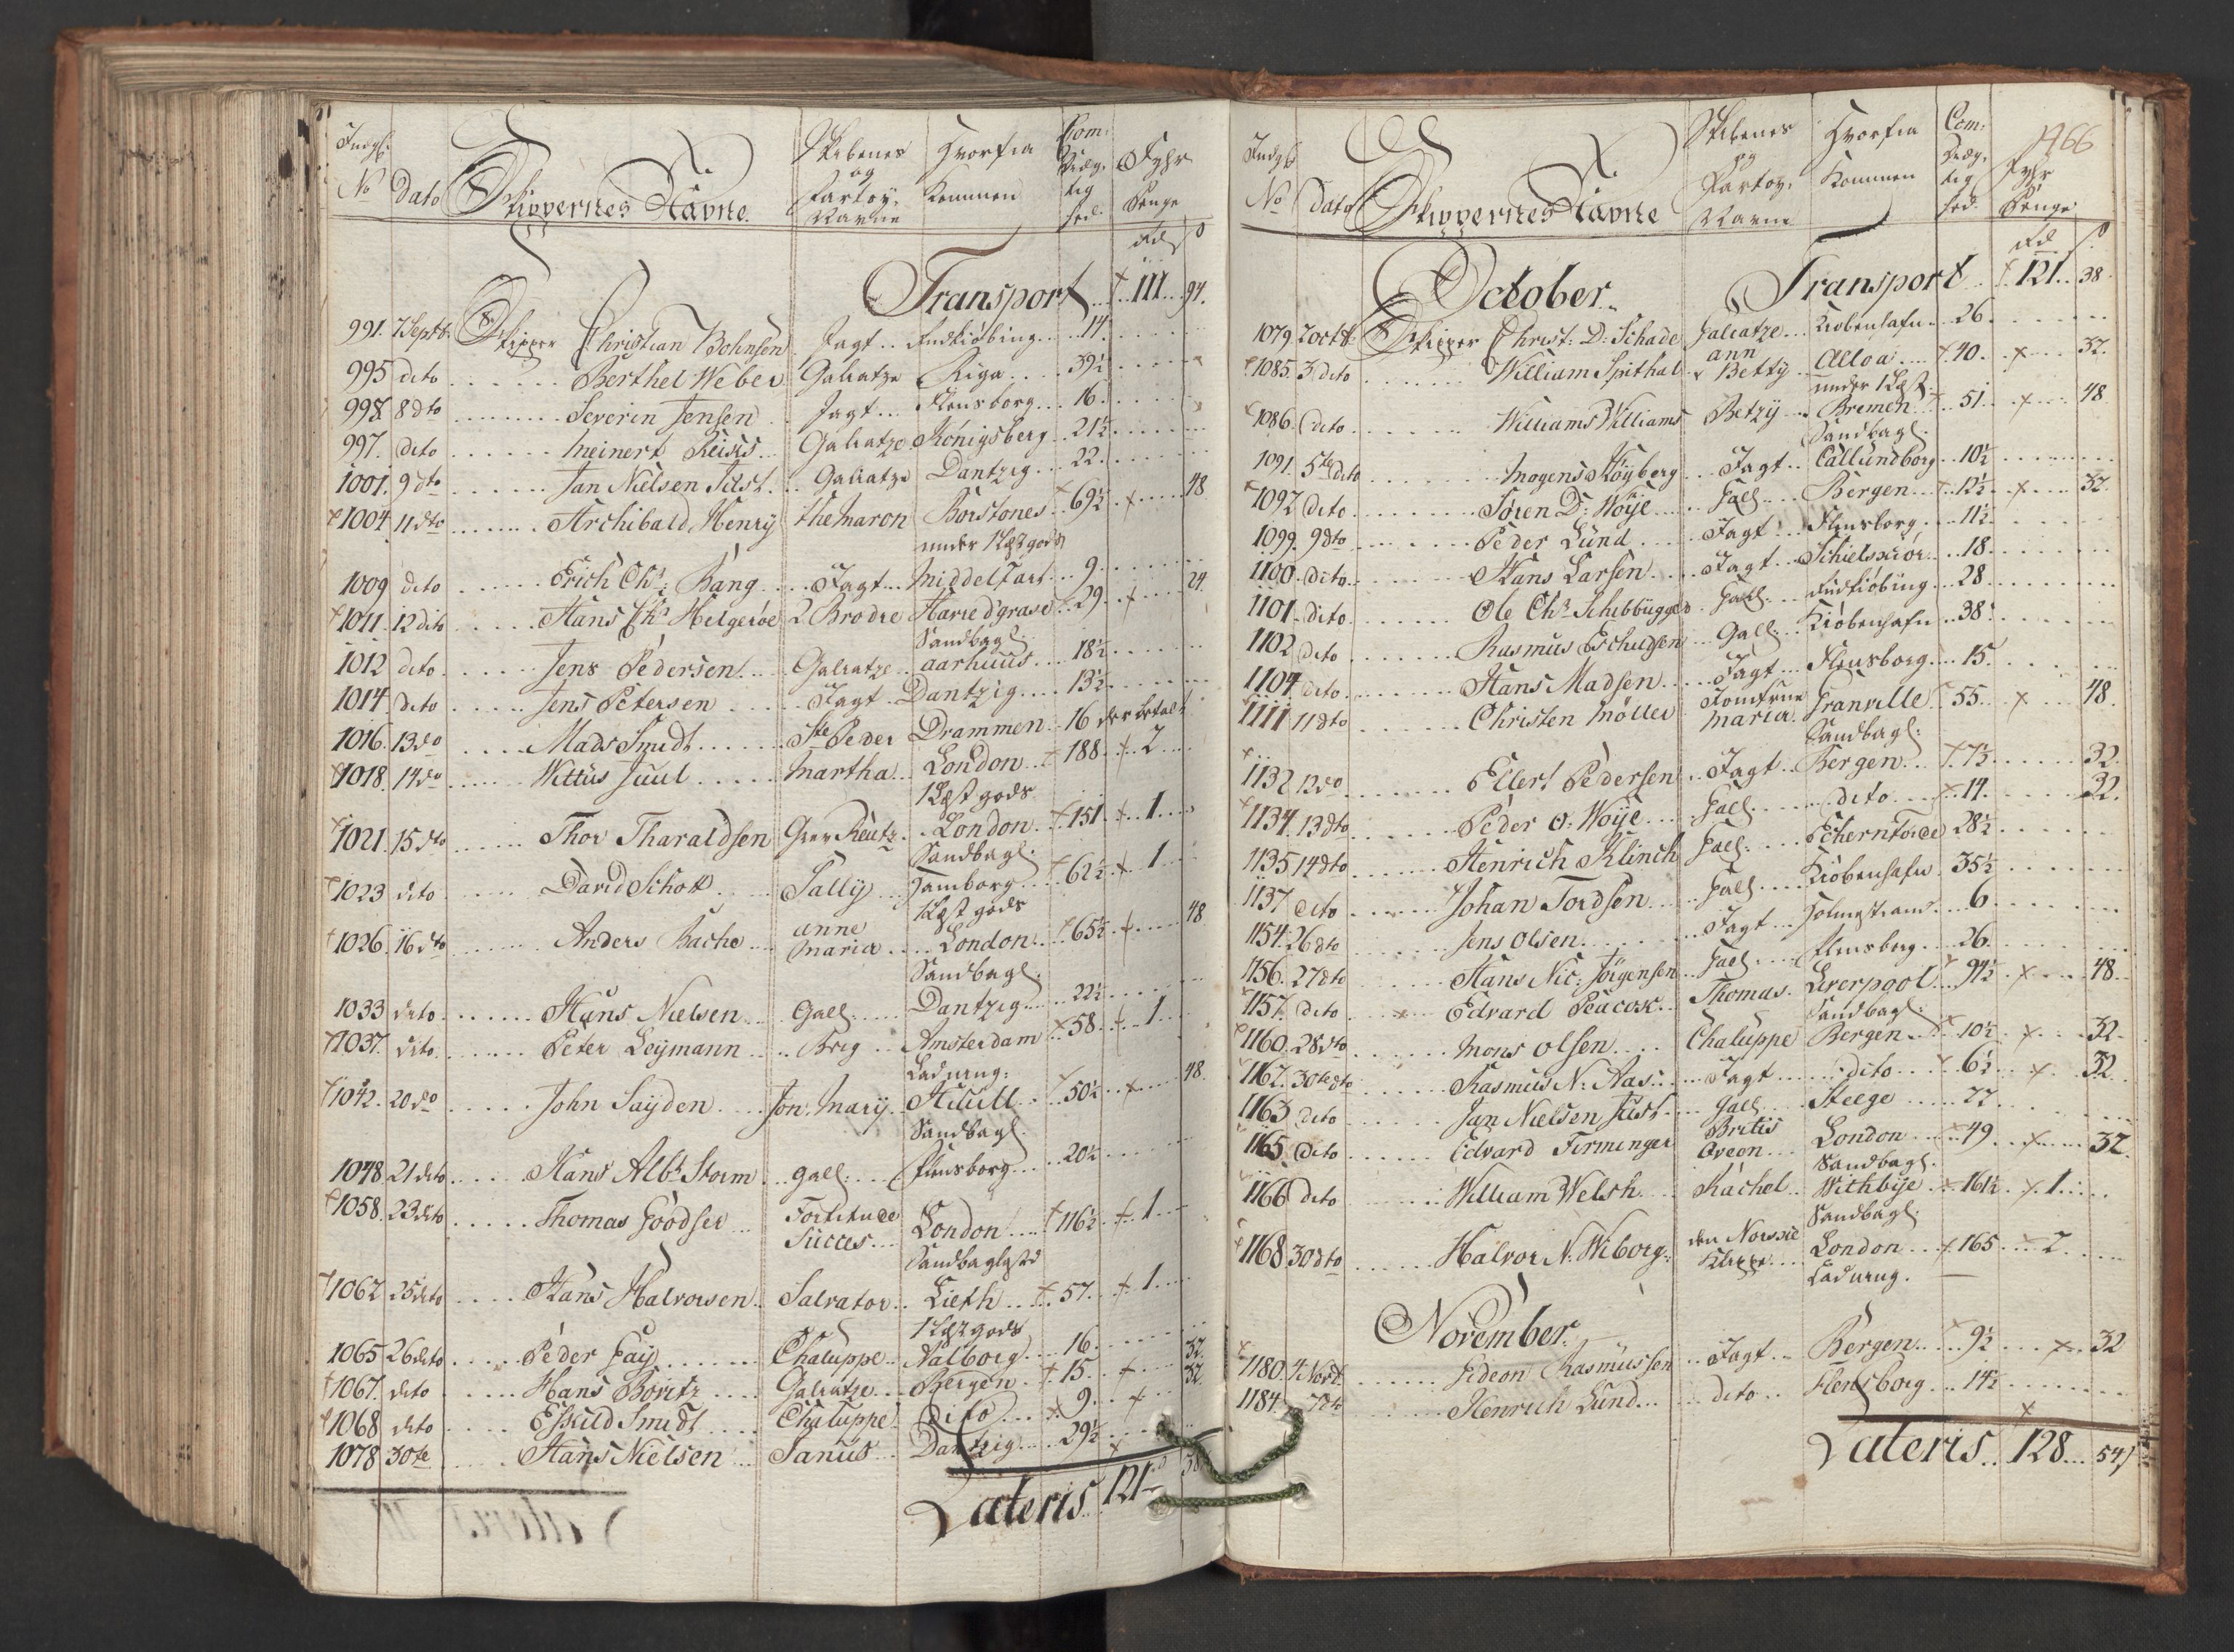 Indg:
No Dato Skippernes Navne Skibenes og Fartøy Navne Hvorfra Kommen Com: Dræg: tig hed. Fyhr Penge
Rd s
Transport 111 94.
991. 7 Septb: Skipper Christian Bohnsen Jagt Rudkiøbing 14.
995 dito Berthel Weber Galeatze Riga 39½
998 8dto Severin Jensen Jagt Flensborg 16.
997. dito Meinert Reists Galeatze Königsberg 21½
1001. 9dto Jan Nielsen Just Galeatze Dantzig 22.
1004 11dto Archibald Henry the Maron Borstones 69½ 48
under 1 Læst gods
1009 dito Erich Chr: Bang Jagt Middelfart 9.
1011. 12 dito Hans Chr Helgerøe 2 Brodre Havre d'grace 29. 24.
Sandbagl.
1012 dito Jens Pedersen Galeatze aarhuus 18½
1014. dito Jens Petersen Jagt Dantzig 13½
1016. 13do Mads Smidt Ste Peder Drammen 16 der betalt
1018. 14do Wittus Juul Martha London 188. 2
1 Læst gods
1021. 15dto Thor Tharaldsen Grev Reutz London 151 1
Sandbagl:
1023 dito David Schott Sally Hamborg 62½ 1
1 Læst gods
1026. 16dto Anders Bache anne maria London 65½ 48
Sandbagl.
1033 dito Hans Nielsen Gall: Dantzig 22½
1037. dito Peter Leymann Brig Amsterdam 58. 1
Ladning:
1042. 20do John Sayden Jon. Mary Hull 50½ 48.
Sandbagl.
1048. 21dito Hans Albt Storm gall: Flensborg 20½
1058. 23dito Thomas Goodser Fortitude Succes London 116½ 1
Sandbaglast
1062 25dito Hans Halvorsen Salvator Lieth 57. 1
1 Læst gods
1065 26dito Peder Fay Chaluppe Aalborg 16.
1067. dito Hans Boritz Galeatze Bergen 15. 32.
1068 dito Eskild Smidt Chaluppe dito 9. 32.
1078 30te Hans Nielsen Janus Dantzig 29½
Lateris 121 38
1466
Indgl:
No Dato Skippernes Navne Skibenes og Fartoy: Navne Hvorfra Kommen Com: Dræg: tig hed. Fyhr Penge
Rd s
October Transport 121 38
1079. 2 Octb: Skipper Christ: D: Schade Galeatze Kiobenhafn 26.
1085. 3 dito William Spithal ann Betty Alloa 40. 32.
under 1 Læst
1086. dito Williams Williams Betzy Bremen 51 48
Sandbagl.
1091. 5te dito Mogens Høyberg Jagt Callundborg 10½
1092 dito Søren D: Høye Gall: Bergen 12½ 32.
1099. 9dto Peder Lund Jagt Flensborg 11½
1100. dito Hans Larsen Jagt Schielskiør 18.
1101. dito Ole Chr Schibbugges Gall: Rudkiöbing 28
1102 dito Rasmus Eschildsen Gall: Kiobenhafn 38.
1104 dito Hans Madsen Jagt Flensborg 15.
1111 11dto Christen Møller Jomfrue Maria Granville 55 48.
Sandbagl:
1132 12do Ellert Pedersen Jagt Bergen 7½ 32
1134. 13dto Peder O: Høye Gall: dito 14. 32.
1135 14dto Henrich Klinck Gall: Echernførde 28½
1137 dito Johan Tordsen Gall: Kiobenhafn 35½
1154. 26dto Jens Olsen Jagt Holmestrand 6
1156. 27dto Hans Nic: Jörgensen Gall: Flensborg 26.
1157. dito Edvard Peacock Thomas Liverpool 94½ 48
Sandbagl:
1160. 28dto Mons Olsen Chaluppe Bergen 10½ 32.
1162. 30te dto Rasmus N: Aas Jagt dito 6½ 32
1163 dito Jan Nielsen Just Gall: Steege 22
1165. dito Edvard Firminger Britis Qveen London 49. 32.
Sandbagl.
1166 dito William Welsh Rachel Withbye 161½ 1.
Sandbagl.
1168 30dto Halvor N: Wiborg den Norske Klippe London 165 2
Ladning.
November
1180. 4 Novb. Gideon Rasmussen Jagt Bergen 9½ 32
1184. 7de Henrich Lund dito Flensborg 14½
Lateris 128 54